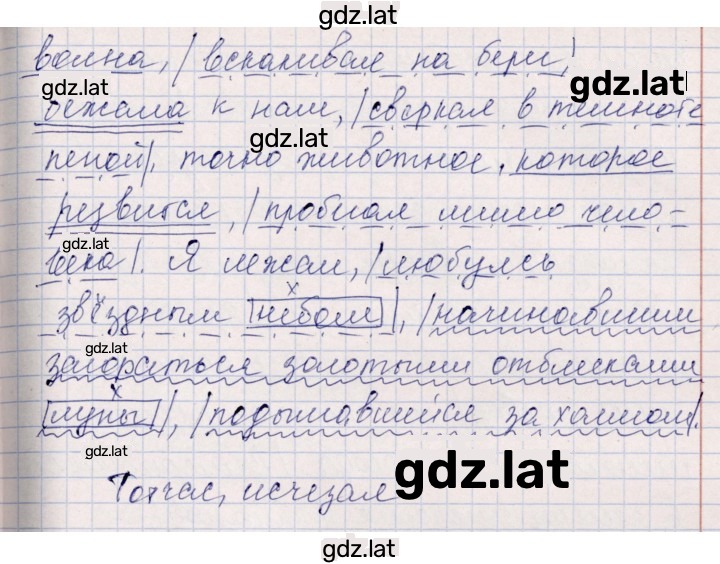 gdz.lat
волна, | вскапивая на берег,
gdz.lat
gdz.lat
бежала к нам, | сверкая в темноте
gdz.lat
пеной |, точно животное, которое
резвится, | пробегая мимо чело-
gdz.lat
века |. Я лежал, | любуясь
х
звёздным небом |, | начинавшим
gdz.lat
загораться золотыми отблесками
х
луны |, | подымавшейся за холмом |.
gdz.lat
gdz.lat
Тотчас, исчезая
gdz.lat